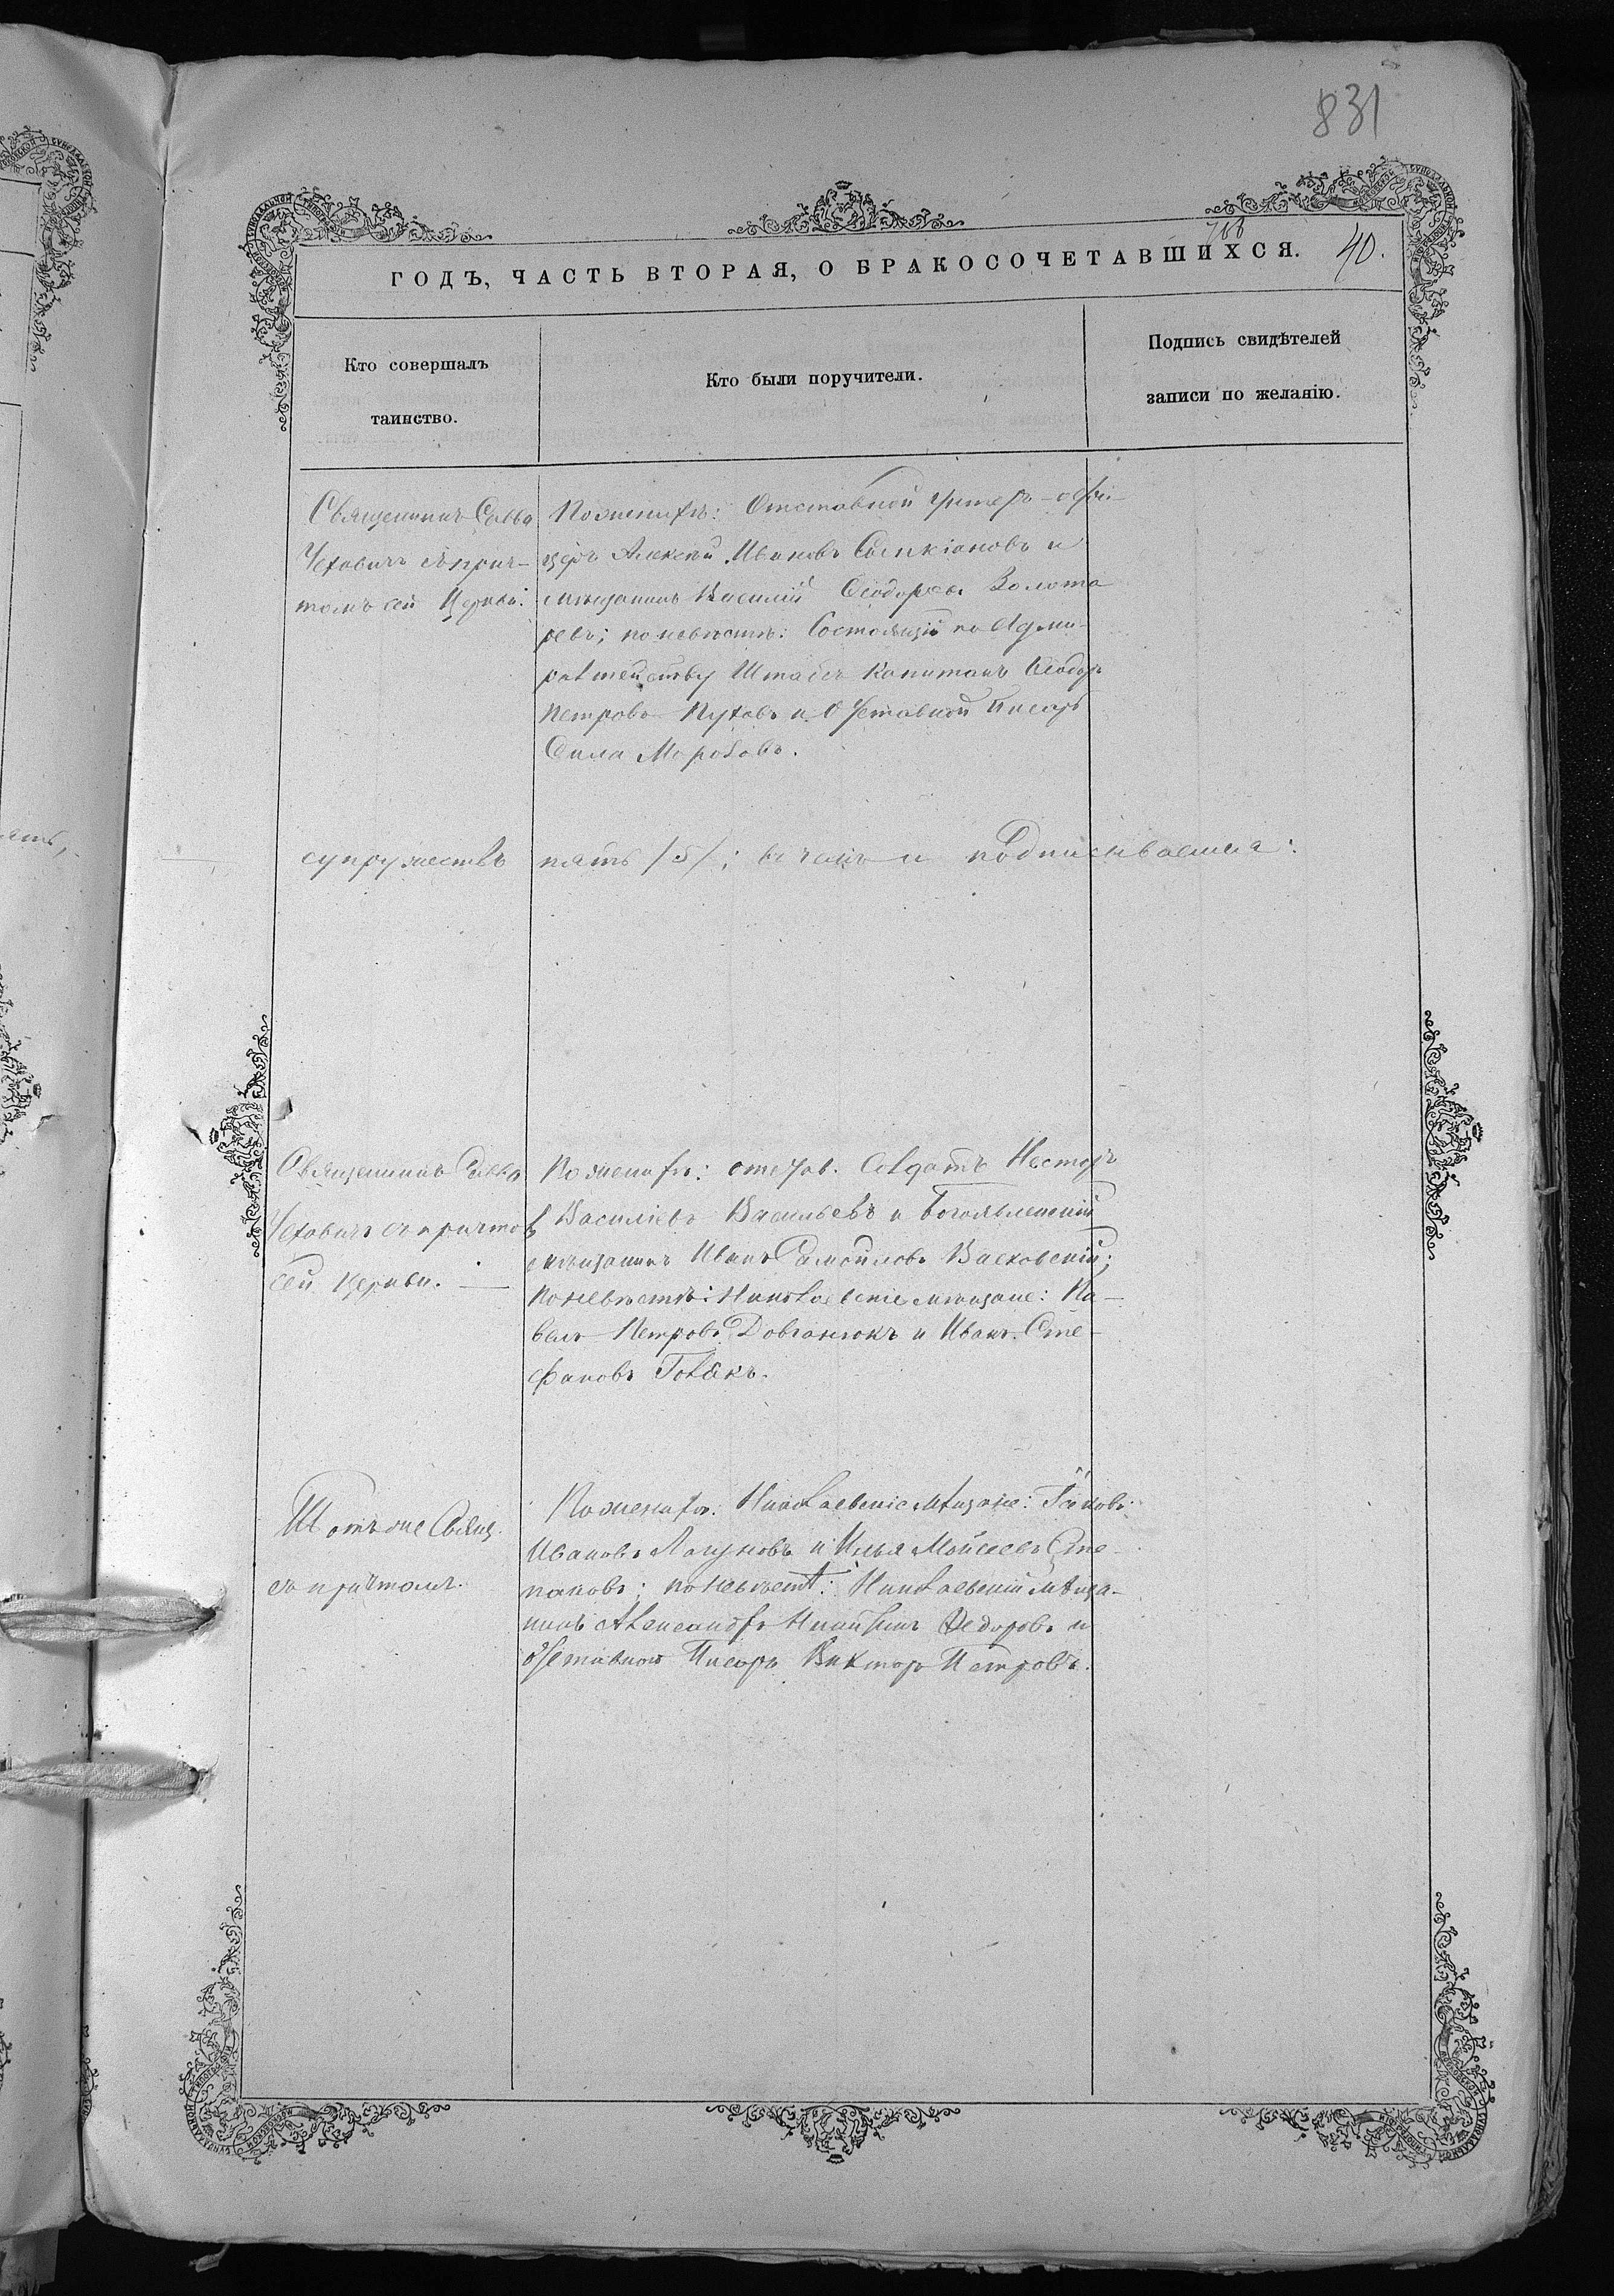 831
788
ГОДЪ, ЧАСТЬ ВТОРАЯ, О БРАКОСОЧЕТАВШИХСЯ. 40.
Кто совершалъ
таинство.
Кто были поручители.
Подпись свидѣтелей
записи по желанію.
Священникъ Савва
Чеховичъ съ прич-
томъ сей Церкви.
По женихѣ: Отставной Унтеръ-офи-
церъ Алексѣй Ивановъ и
мѣщанинъ Василій Ѳеодоровъ Золота
ревъ; по невѣстѣ: Состоящій по Адми-
ралтейству Штабсъ Капитанъ Ѳеодоръ
Петровъ Пуховъ и Отставной Писарь
Сила Морозовъ.
супружествъ пять /5/; въ чемъ и подписываемся:
Священникъ Савва
Чеховичъ съ причтом
сей Церкви.
По женихѣ: отстав. Солдатъ Несторъ
Василіевъ Васильевъ и Богоявленскій
мѣщанинъ Иванъ Самойловъ Васковскій;
По невѣстѣ: Николаевскіе мѣщане: Па-
велъ Петровъ Довганюкъ и Иванъ Сте-
фановъ
Тотъ же Свящ.
съ причтомъ.
По женихѣ: Николаевскіе мѣщане: Іаковъ
Ивановъ Лагуновъ и Илья Мойсеевъ Сте-
пановъ; по невѣстѣ: Николаевскій мѣща-
нинъ Александръ Никитинъ Ѳедоровъ и
отставной Писарь Викторъ Петровъ.